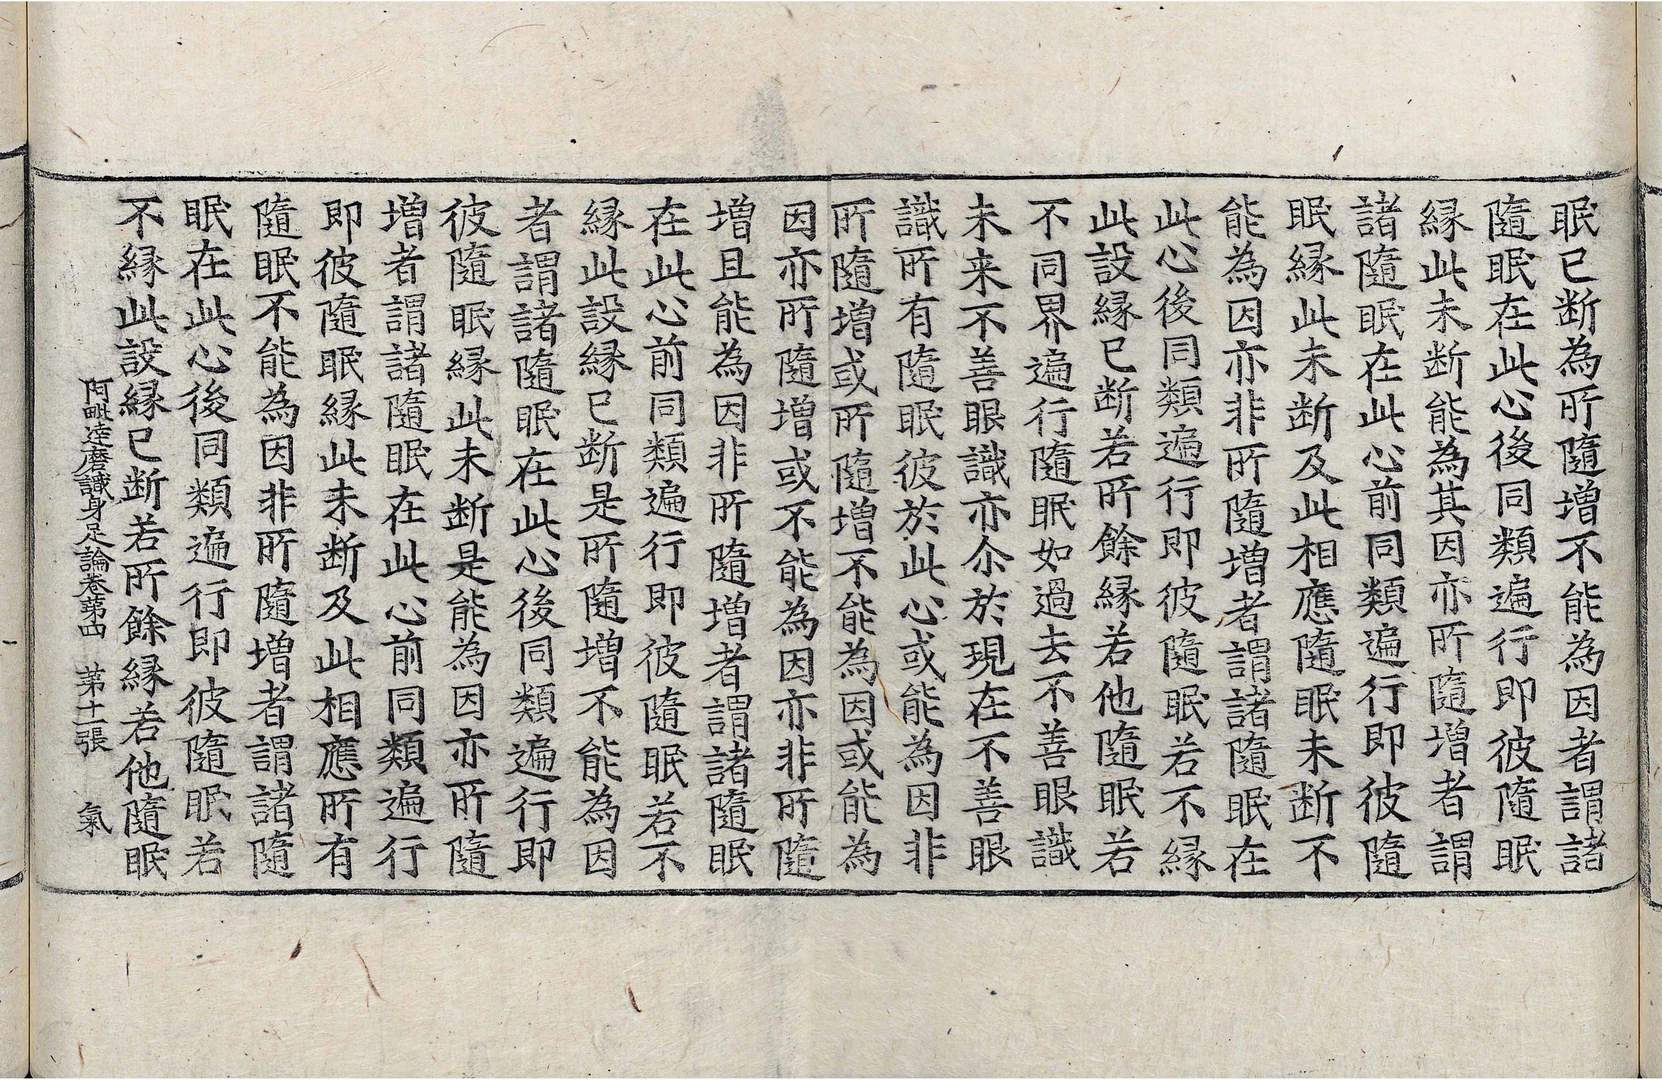 眠已断為所隨增不能為因者謂諸
隨眠在此心後同類遍行即彼隨眠
縁此未断能為其因亦所隨增者謂
諸隨眠在此心前同類遍行即彼隨
眠縁此未断及此相應隨眠未断不
能為因亦非所隨增者謂諸隨眠在
此心後同類遍行即彼隨眠若不縁
此設縁已断若所餘縁若他隨眠若
不同界遍行隨眠如過去不善眼識
未来不善眼識亦尒於現在不善眼
識所有隨眠彼於此心或能為因非
所隨增或所隨增不能為因或能為
因亦所隨增或不能為因亦非所隨
增且能為因非所隨增者謂諸隨眠
在此心前同類遍行即彼隨眠若不
縁此設縁已断是所隨增不能為因
者謂諸隨眠在此心後同類遍行即
彼隨眠縁此未断是能為因亦所隨
增者謂諸隨眠在此心前同類遍行
即彼隨眠縁此未断及此相應所有
隨眠不能為因非所隨增者謂諸隨
眠在此心後同類遍行即彼隨眠若
不縁此設縁已断若所餘縁若他隨眠
阿毗達磨識身足論卷苐四 苐十一張 氣